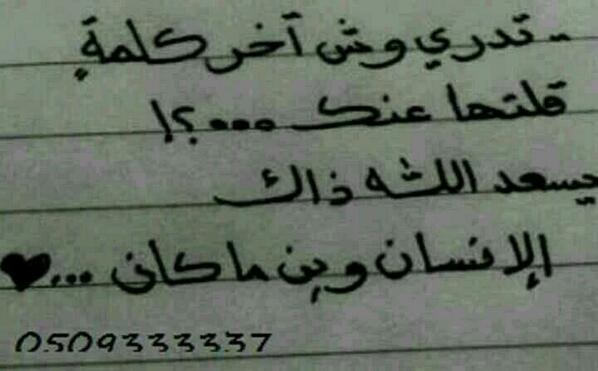 .. تدري وش آخر كلمةٍ
قلتها عنك ...؟!
يسعد الله ذاك
الإنسان وين ما كان ...♥
0509333337